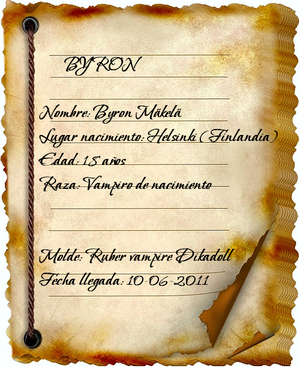 BYRON
Nombre: Byron Mäkelä
Lugar nacimiento: Helsinki (Finlandia)
Edad: 18 años
Raza: Vampiro de nacimiento
Molde: Ruber vampire Dikadoll
Fécha llegada: 10-06-2011